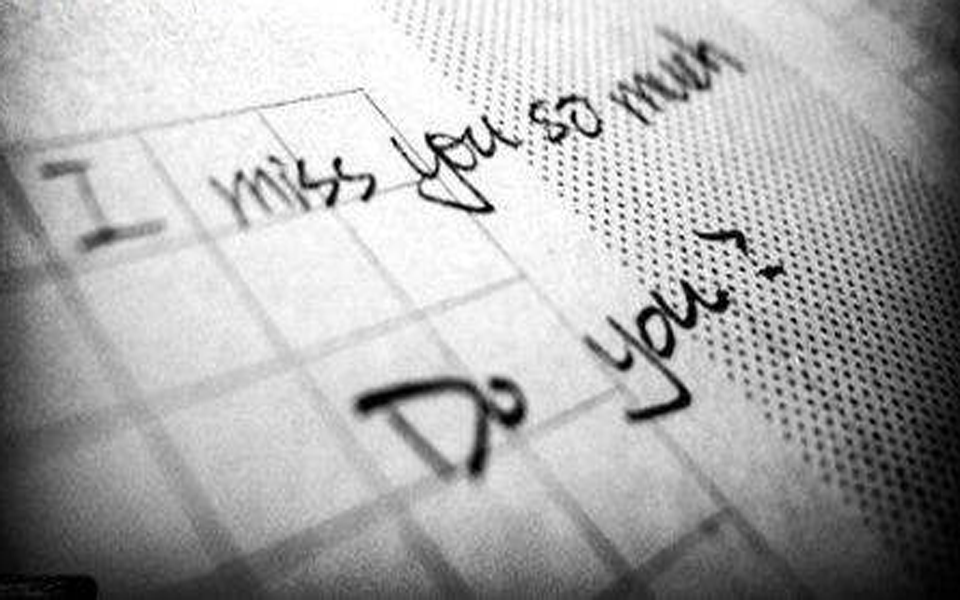 I miss you so much
Do you?